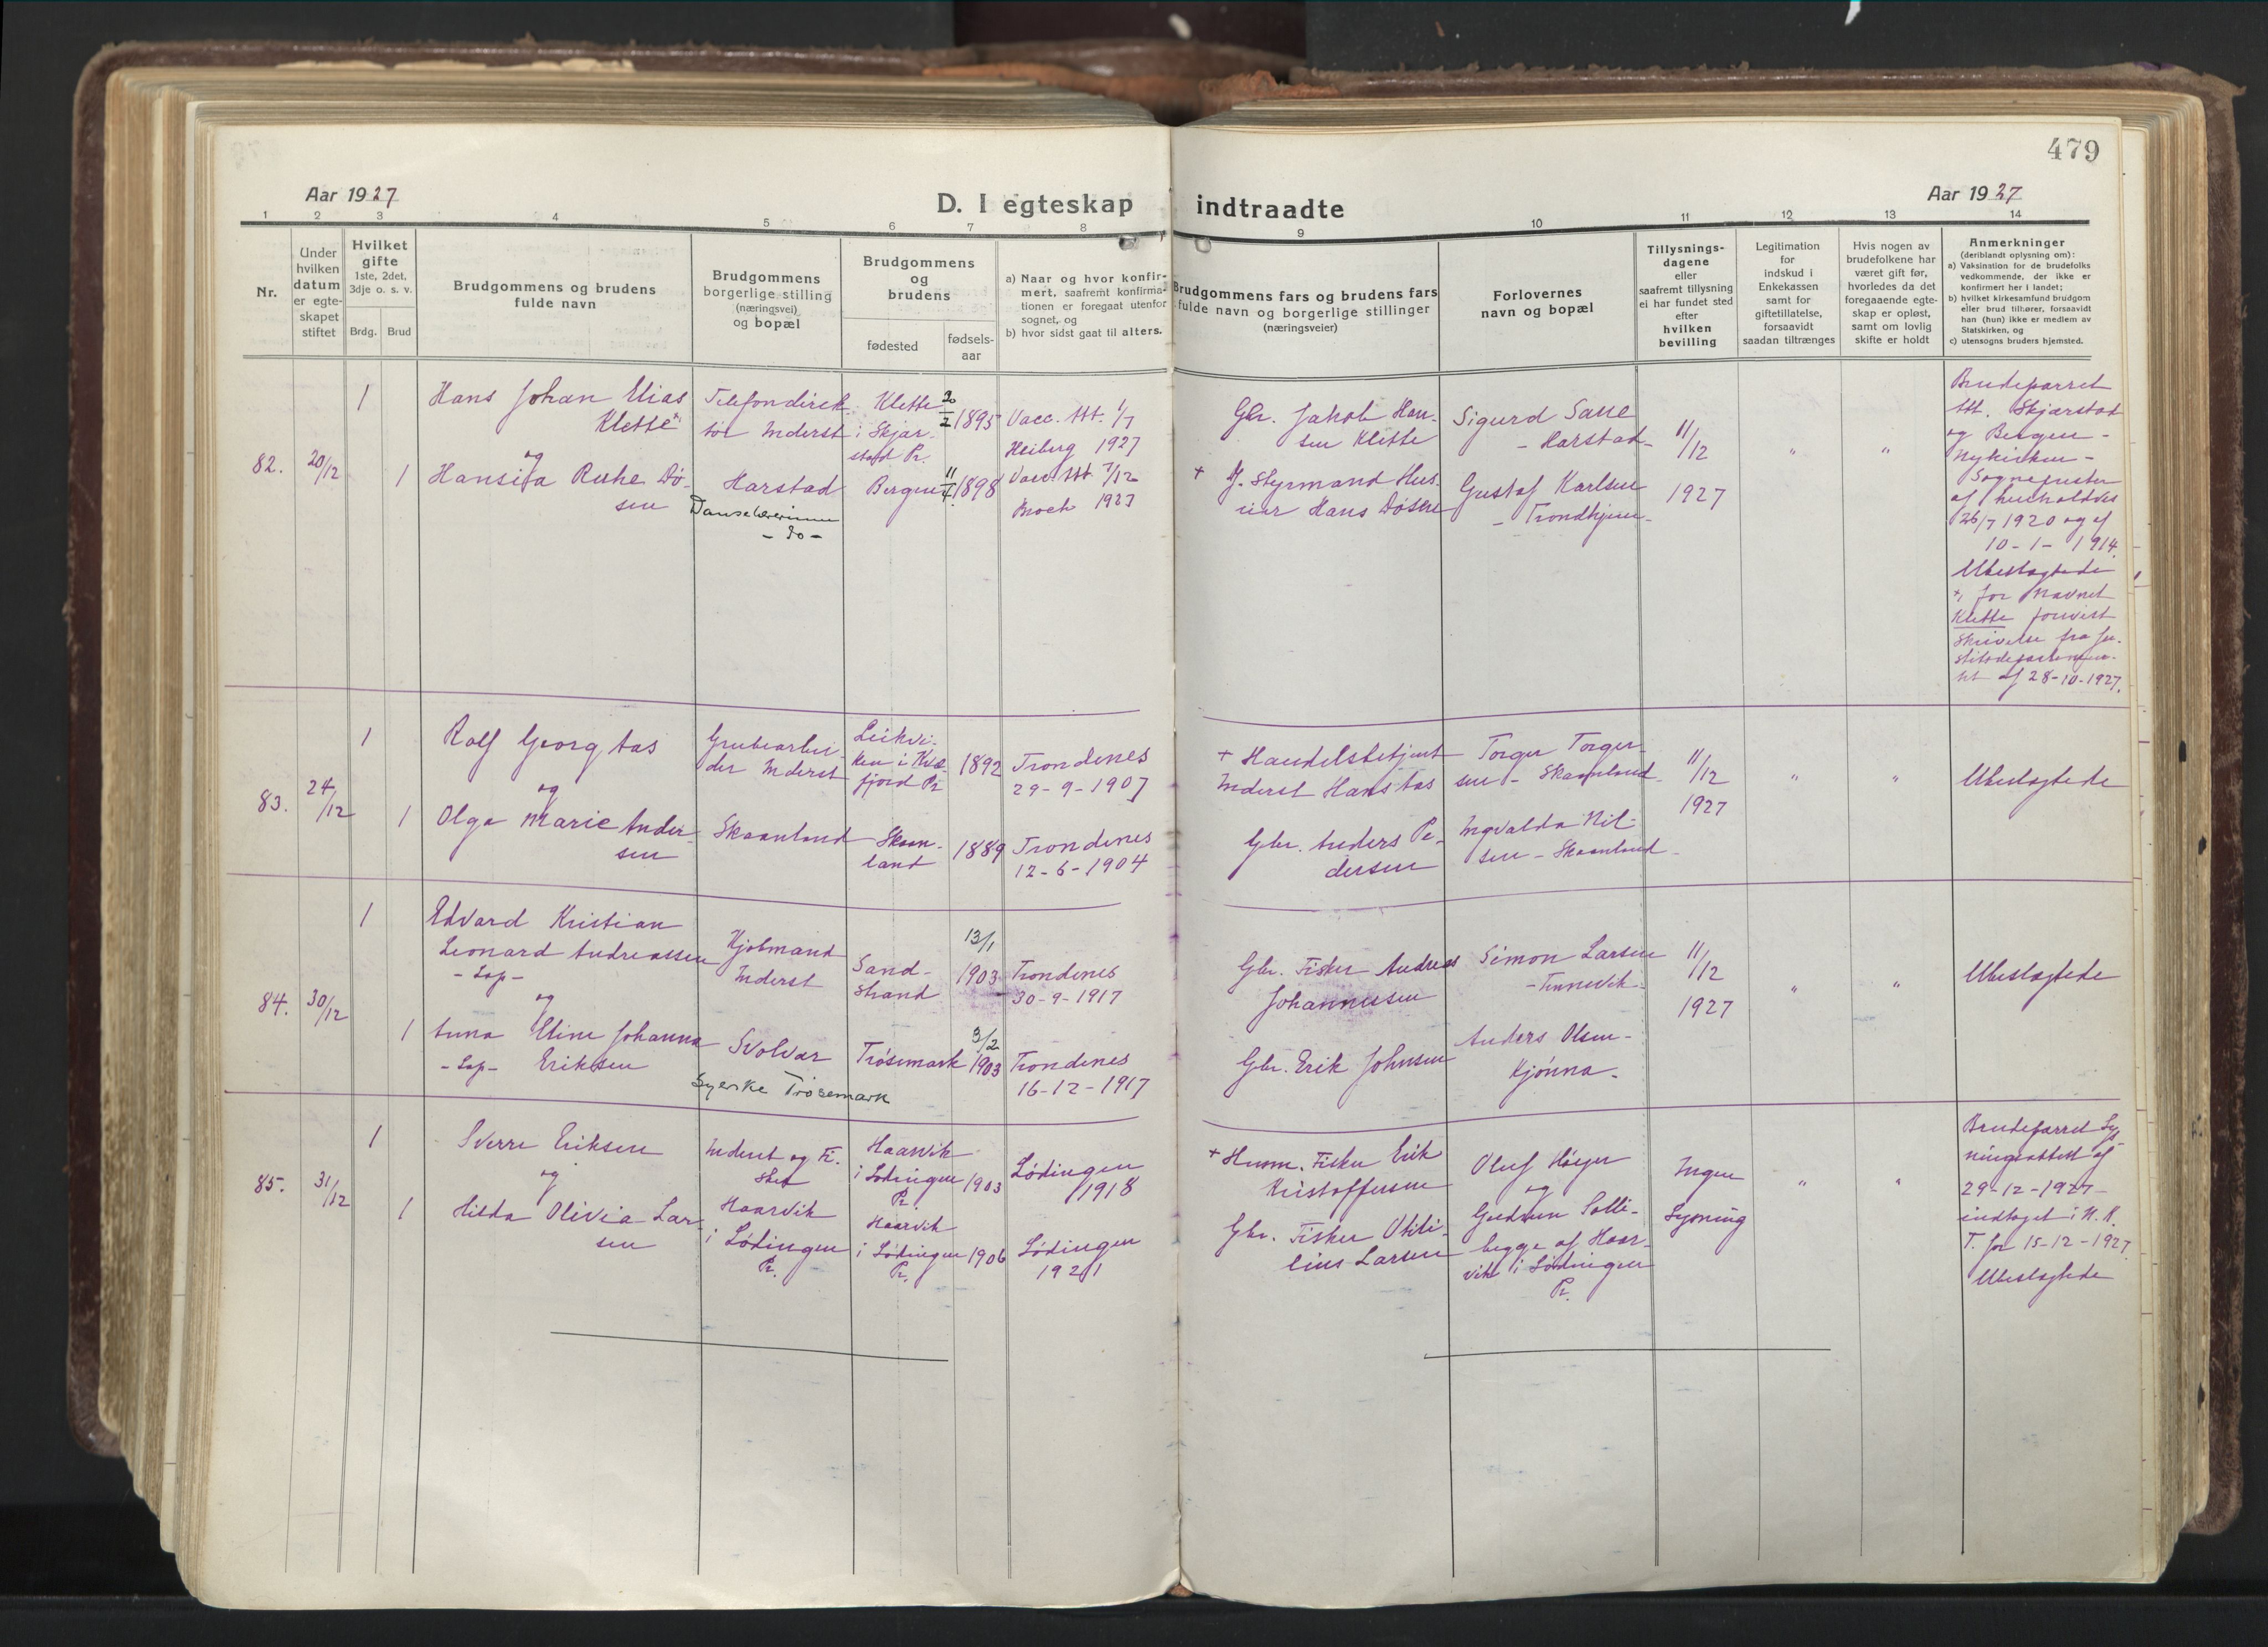 479
Aar 1927
D. I egteskap indtraadte
Aar 1927
1 2 3 4 5 6 7 8 9 10 11 12 13 14
Nr.
Under
hvilken
datum
er egte-
skapet
stiftet
Hvilket
gifte
1ste, 2det,
3dje o. s. v.
Brdg.
Brud
Brudgommens og brudens
fulde navn
Brudgommens
borgerlige stilling
(næringsvei)
og bopæl
Brudgommens
og
brudens
fødested
fødsels-
aar
a) Naar og hvor konfir-
mert, saafremt konfirma-
tionen er foregaat utenfor
sognet, og
b) hvor sidst gaat til alters.
Brudgommens fars og brudens fars
fulde navn og borgerlige stillinger
(næringsveier)
Forlovernes
navn og bopæl
Tillysnings-
dagene
eller
saafremt tillysning
ei har fundet sted
efter
hvilken
bevilling
Legitimation
for
indskud i
Enkekassen
samt for
giftetillatelse,
forsaavidt
saadan tiltrænges
Hvis nogen av
brudefolkene har
været gift før,
hvorledes da det
foregaaende egte-
skap er opløst,
samt om lovlig
skifte er holdt
Anmerkninger
(deriblandt oplysning om):
a) Vaksination for de brudefolks
vedkommende, der ikke er
konfirmert her i landet;
b) hvilket kirkesamfund brudgom
eller brud tilhører, forsaavidt
han (hun) ikke er medlem av
Statskirken, og
c) utensogns bruders hjemsted.
82.
20/12
1
Hans Johan Elias
Klette *)
og
1
Hansina Ruhe Dø-
sen
Telefondirek-
tør Inderst
Harstad
Danselærerinne
- do -
Klette
i Skjær-
stad Pr.
20/2 1895
Bergen
11/ 1898
Vacc. Att. 1/7
Heiberg 1927
Vacc. Att. 7/12
Broch 1927
Gbr. Jakob Han-
sen Klette
+ Styrmand
Hans Døsen
Sigurd Sasse
- Harstad -
Gustaf Karlsen
- Trondhjem -
11/12
1927
"
"
Brudeparret
Att. Skjærstad
og Bergen -
Nykirken -
Sogneprester
af
26/7 1920 og af
10 - 1 - 1914.
Ubeslægtede
*) for navnet
Klette forevist
skrivelse fra Ju-
stitsdepartemen-
tet af 28-10-1927.
83.
24/12
1
Rolf Georg Aas
og
1
Olga Marie Ander-
sen
Grubearbei-
der Inderst
Skaanland
Leikvi-
ken i Kvæ-
fjord Pr
1892
Skaan-
land
1889
Trondenes
29-9-1907
Trondenes
12-6-1904
+ Handelsbetjent
Inderst Hans Aas
Gbr. Anders Pe-
dersen
Torger Torger-
sen - Skaanland
Ingvalda Nil-
sen - Skaanland
11/12
1927
"
"
Ubeslægtede
84.
30/12
1
Edvard Kristian
Leonard Andreassen
- Lap -
og
1
Anna Eline Johanna
- Lap - Eriksen
Kjøbmand
Inderst
Svolvær
Syerske Trøsemark
Sand-
strand
13/1
1903
Trøsemark
3/2
1903
Trondenes
30-9-1917
Trondenes
16-12-1917
Gbr. Fisker Andreas
Johannessen
Gbr. Erik Johnsen
Simon Larsen
- Tennevik -
Anders Olsen -
Kjønna -
11/12
1927
"
"
Ubeslægtede
85.
31/12
1
Sverre Eriksen
og
1
Hilda Olivia Lar-
sen
Inderst og Fi-
sker
Haarvik
i Lødingen
Pr.
Haarvik
i Lødingen
Pr.
1903
Haarvik
i Lødingen
Pr.
1906
Lødingen
1918
Lødingen
1921
+ Husm. Fisker Erik
Kristoffersen
Gbr. Fisker Otili-
lius Larsen
Oluf Høyer
og
Gudrun Solli -
begge af Haar-
vik i Lødingen
Pr.
Ingen
Lysning
"
"
Brudeparret Lys-
ningsattest af
29-12-1927 -
indtaget i H. R.
T. for 15-12-1927.
Ubeslægtede